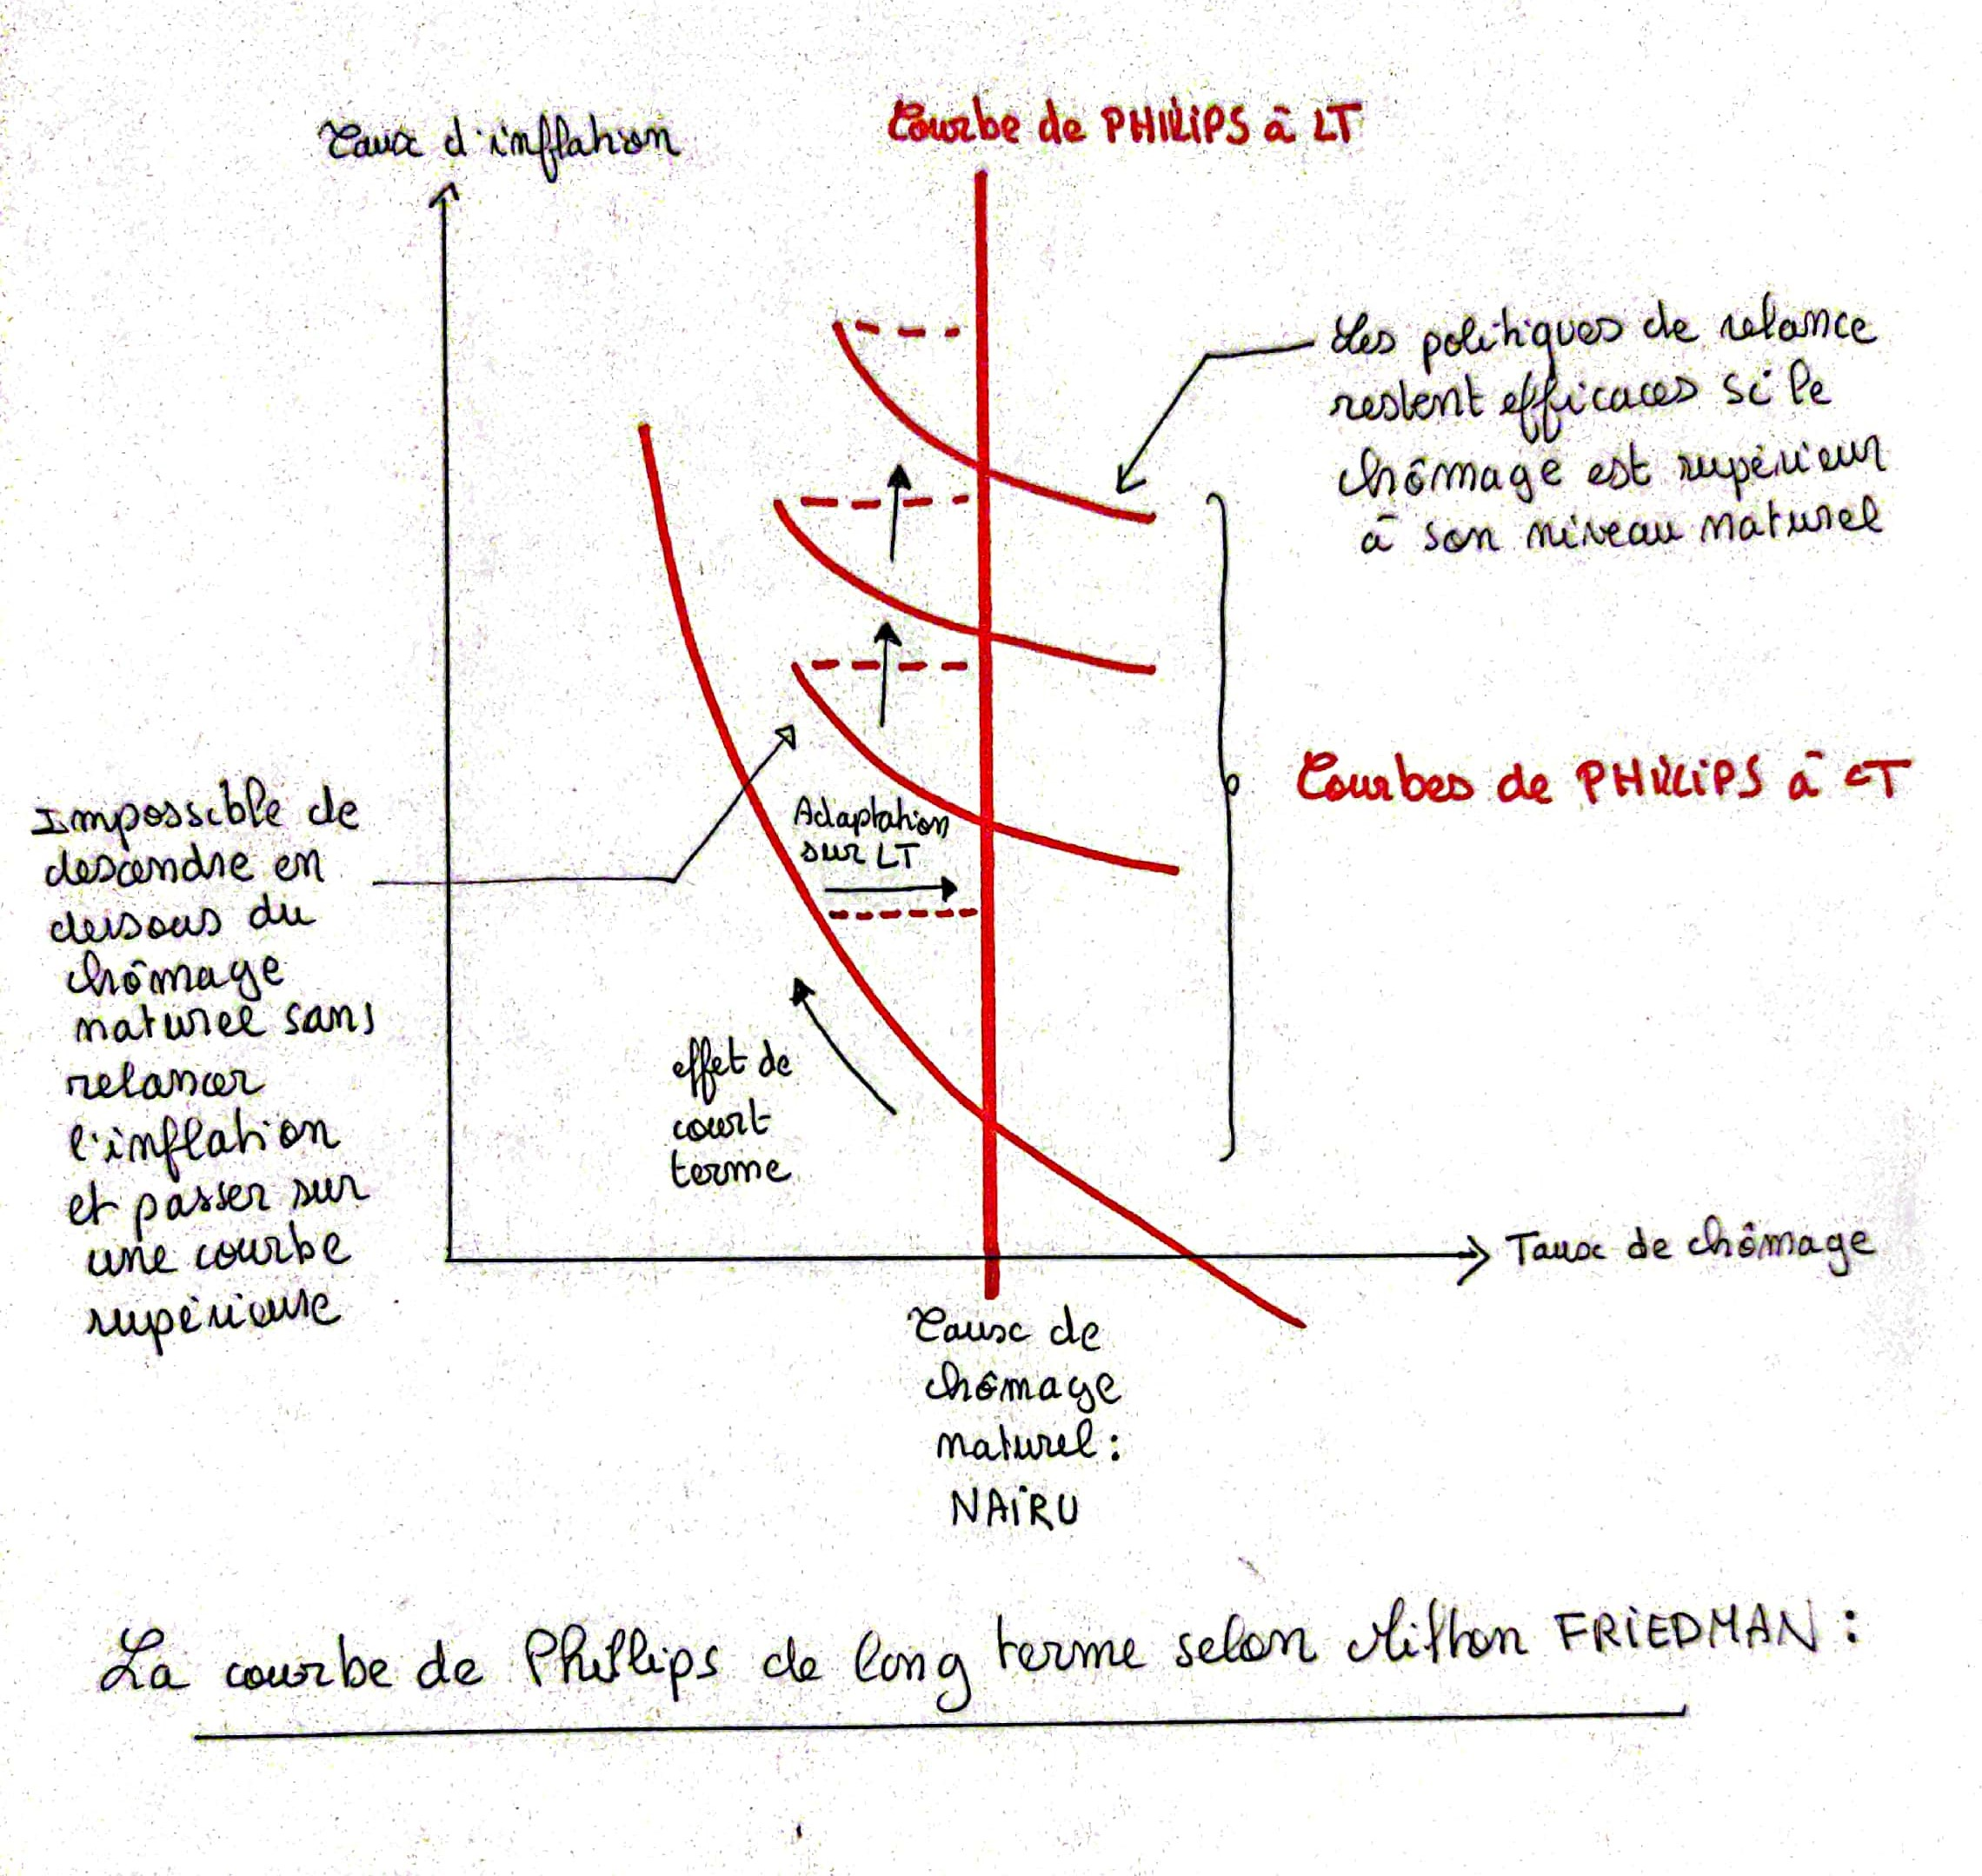 Taux d'inflation
Courbe de PHILIPS à LT
Les politiques de relance
restent efficaces si le
chômage est supérieur
à son niveau naturel
Courbes de PHILIPS à CT
Impossible de
descendre en
dessous du
chômage
naturel sans
relancer
l'inflation
et passer sur
une courbe
supérieure
Adaptation
sur LT
effet de
court
terme
Taux de chômage
Taux de
chômage
naturel :
NAIRU
La courbe de Phillips de long terme selon Milton FRIEDMAN :